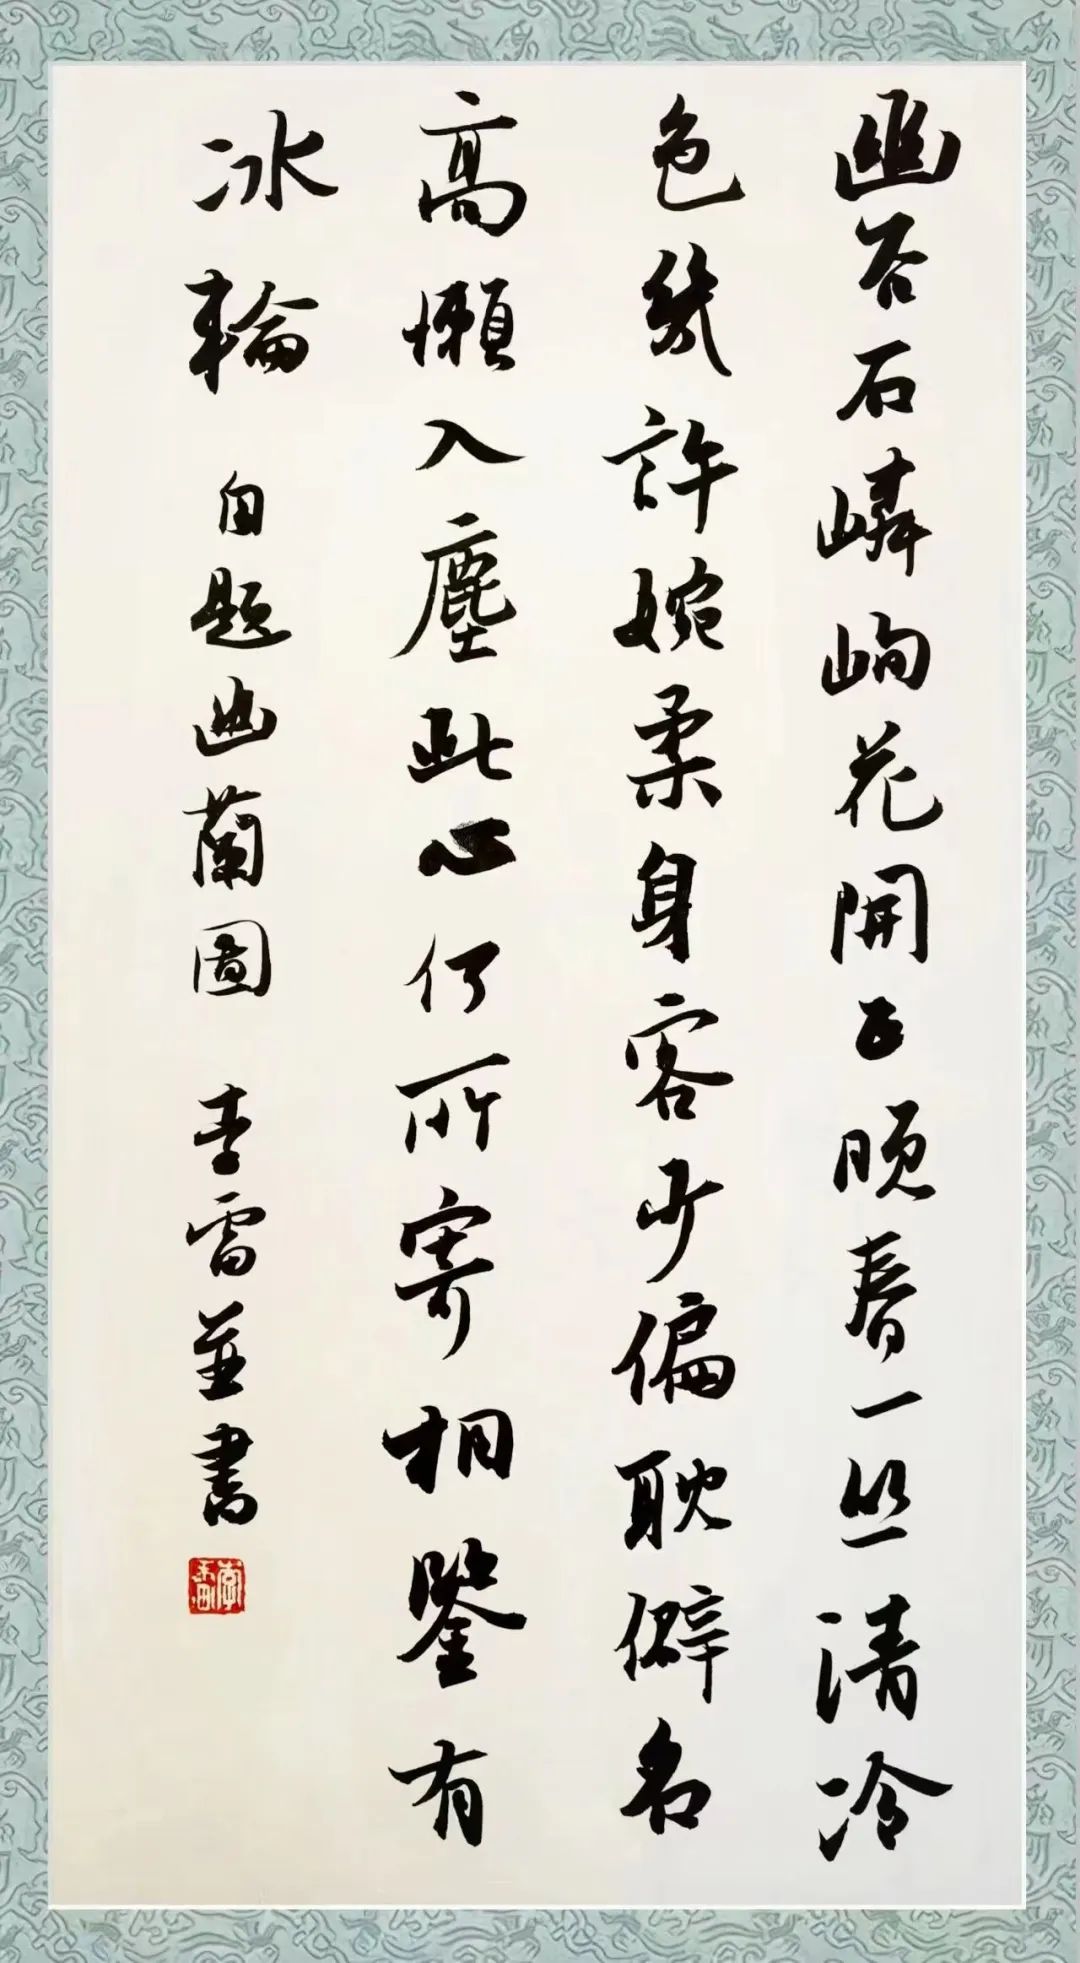 幽谷石嶙峋花開正晚春一丛清冷
色幾許婉柔身客少偏耽僻名
高懶入塵此心何所寄相鑒有
冰輪 自題幽蘭圖 李雷並書